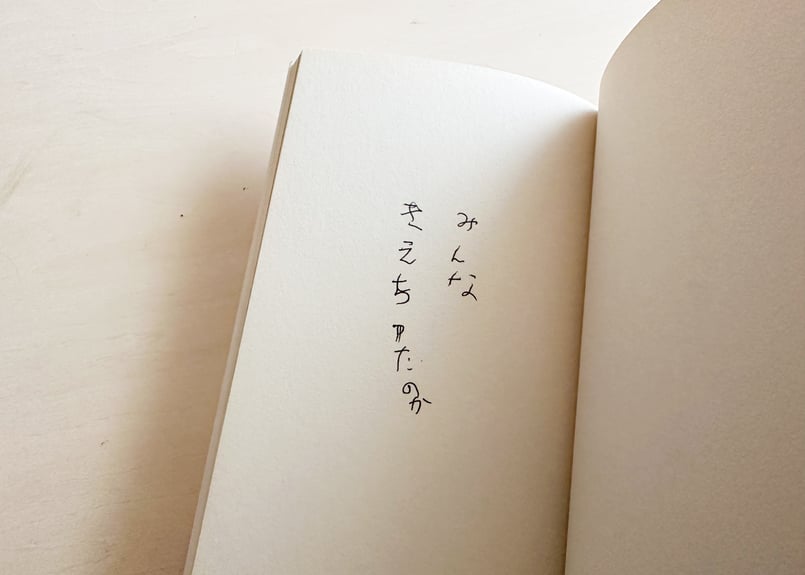 みんな
きえちゃたのか